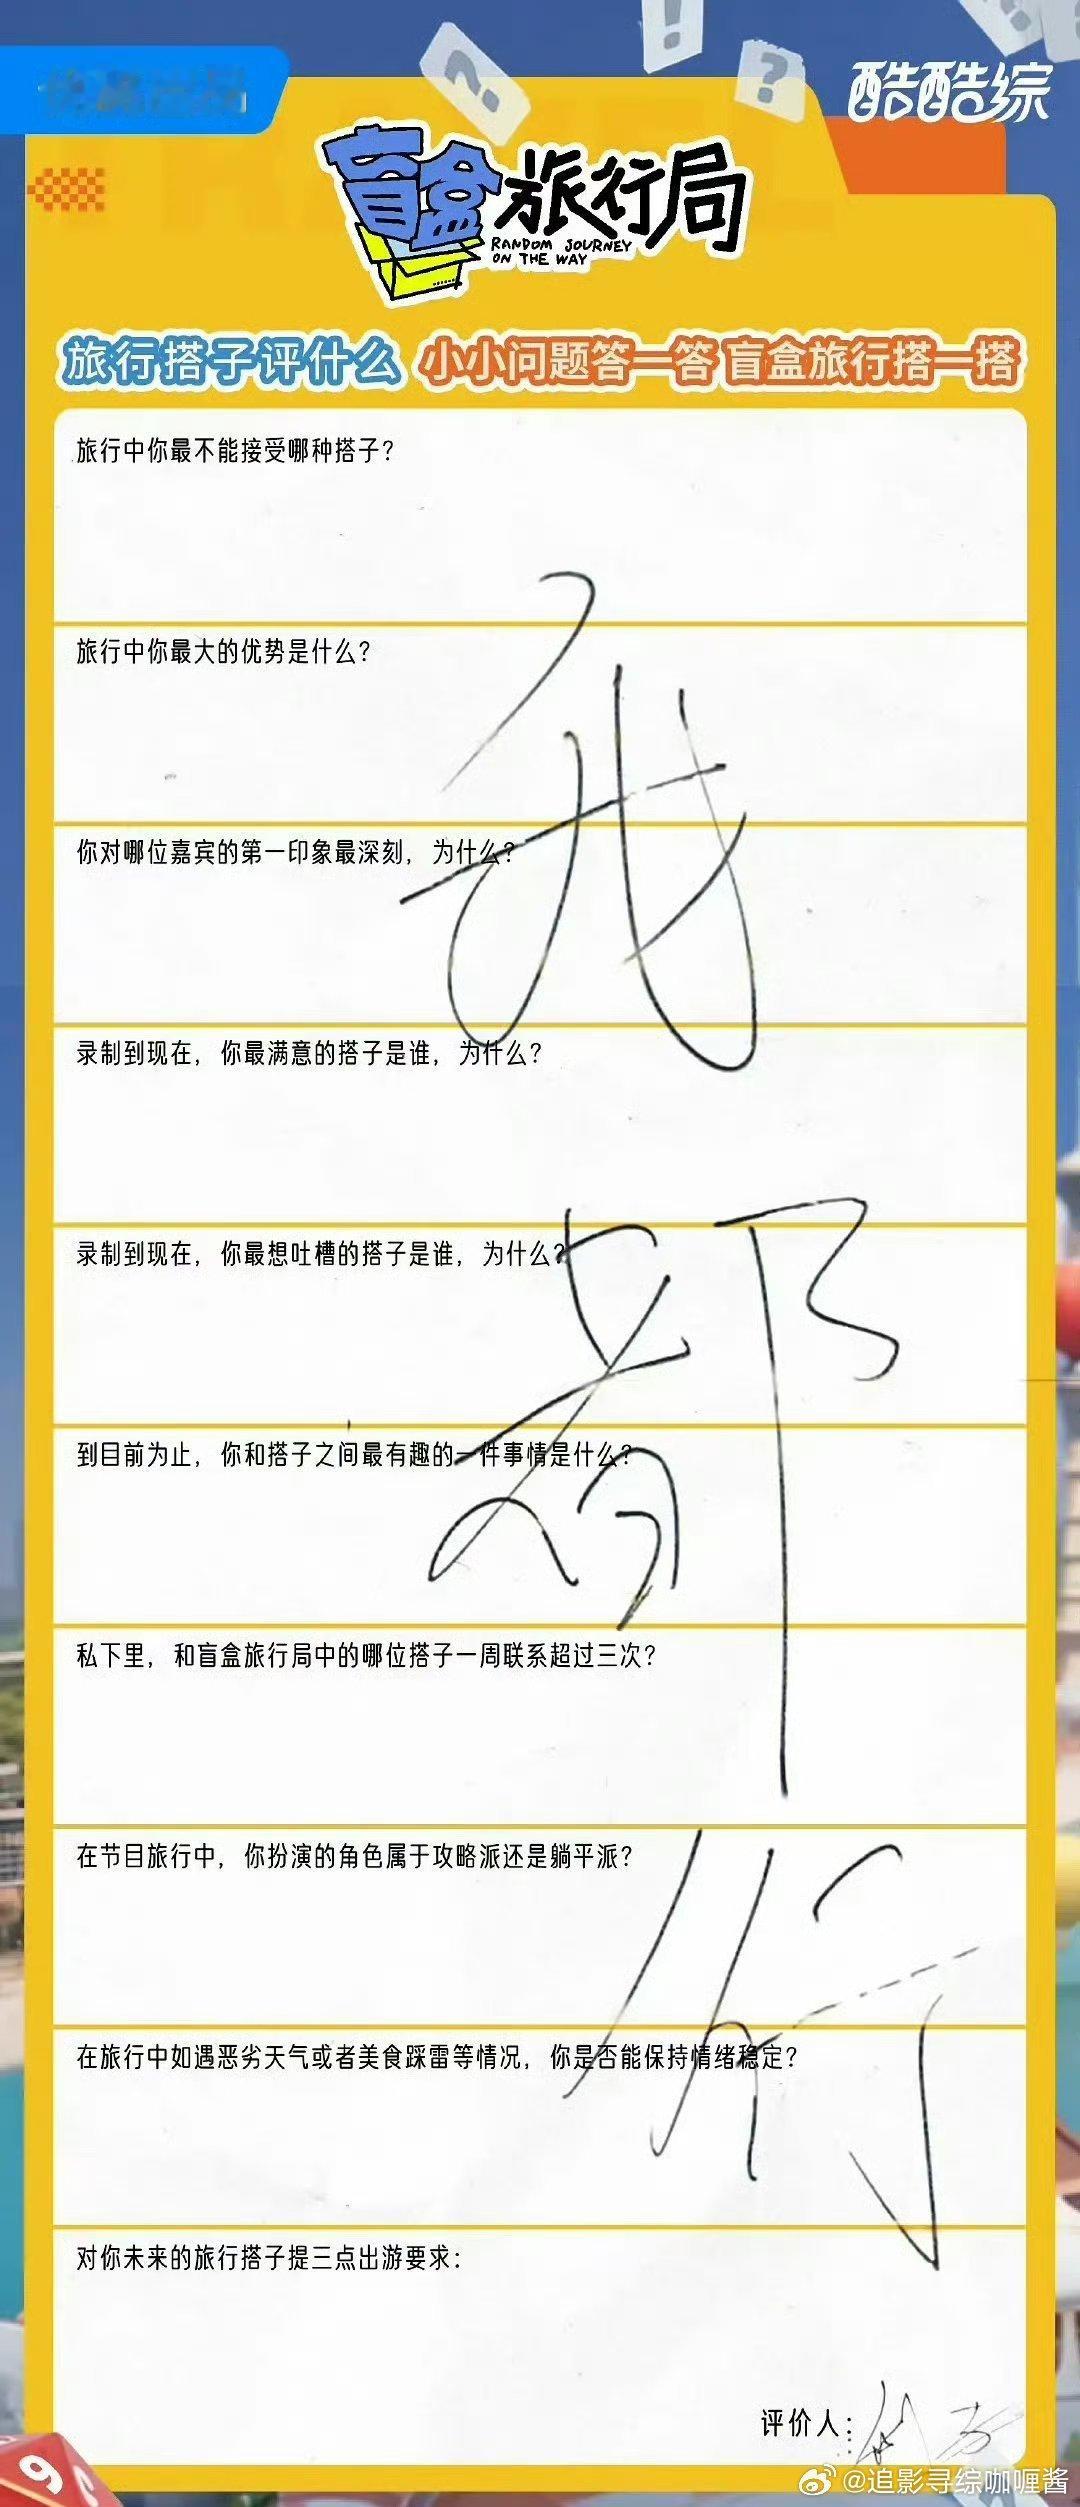 酷酷综
盲盒旅行局
RANDOM JOURNEY
ON THE WAY
旅行搭子评什么 小小问题答一答 盲盒旅行搭一搭
旅行中你最不能接受哪种搭子？
旅行中你最大的优势是什么？
你对哪位嘉宾的第一印象最深刻，为什么？
录制到现在，你最满意的搭子是谁，为什么？
录制到现在，你最想吐槽的搭子是谁，为什么？
到目前为止，你和搭子之间最有趣的一件事情是什么？
私下里，和盲盒旅行局中的哪位搭子一周联系超过三次？
在节目旅行中，你扮演的角色属于攻略派还是躺平派？
在旅行中如遇恶劣天气或者美食踩雷等情况，你是否能保持情绪稳定？
对你未来的旅行搭子提三点出游要求：
我
都
行
评价人：
@追影寻综咖喱酱